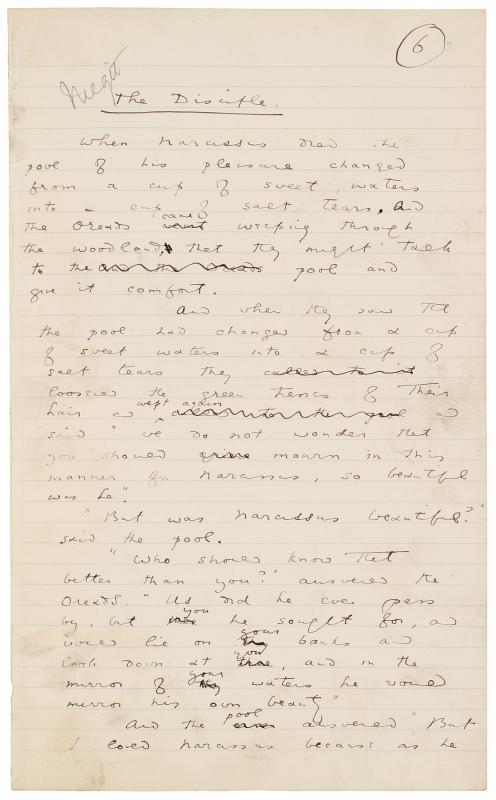 6
The Disciple.
When Narcissus died the
pool of his pleasure changed
from a cup of sweet waters
into a cup of salt tears, and
came
the Oreads went weeping through
the woodland, that they might talk
to the pool and
give it comfort.
And when they saw that
the pool had changed from a cup
of sweet waters into a cup of
salt tears they called to it
loosened the green tresses of their
wept again
hair and and
said "We do not wonder that
you should mourn in this
manner for Narcissus, so beautiful
was he".
"But was Narcissus beautiful?"
said the pool.
"Who should know that
better than you?" answered the
Oreads. "Us did he ever pass
you
by, but he sought for, and
your
would lie on thy banks and
you
look down at thee, and in the
your
mirror of thy waters he would
mirror his own beauty"
pool
And the answered "But
I loved Narcissus because as he